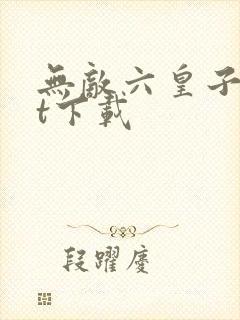 無敵六皇子
t下載
段躍慶